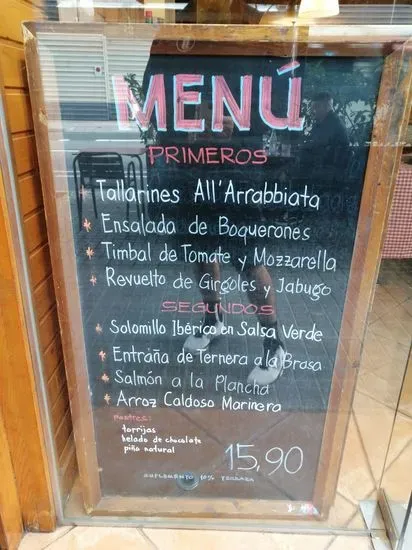 MENÚ
PRIMEROS
* Tallarines All'Arrabbiata
* Ensalada de Boquerones
* Timbal de Tomate y Mozzarella
* Revuelto de Girgoles y Jabugo
SEGUNDOS
* Solomillo Ibérico en Salsa Verde
* Entraña de Ternera a la Brasa
* Salmón a la Plancha
* Arroz Caldoso Marinera
postres:
torrijas
helado de chocolate
piña natural
15,90
SUPLEMENTO 10% TERRAZA